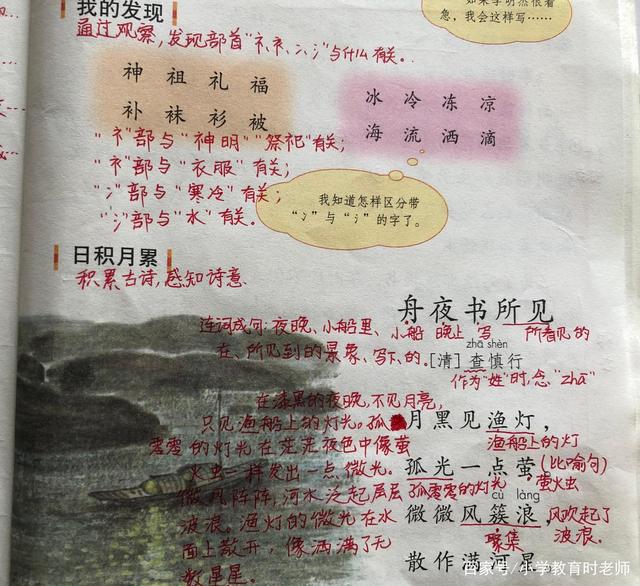 我的发现
如果李明然很着
急，我会这样写……
通过观察，发现部首"礻、衤、冫、氵"与什么有关。
神 祖 礼 福
补 袜 衫 被
冰 冷 冻 凉
海 流 洒 滴
"礻"部与"神明""祭祀"有关；
"衤"部与"衣服"有关；
"冫"部与"寒冷"有关；
"氵"部与"水"有关。
我知道怎样区分带
"冫"与"氵"的字了。
日积月累
积累古诗，感知诗意
舟夜书所见
连词成句：夜晚、小船里、
小船 晚上 写 所看见的
在、所见到的景象、写下、的。
zhā shèn
[清]查慎行
作为"姓"时，念"zhā"
在漆黑的夜晚，不见月亮，
只见渔船上的灯光。孤
零零的灯光在茫茫夜色中像萤
火虫一样发出一点微光。
微风阵阵，河水泛起层层
波浪。渔灯的微光在水
面上散开，像洒满了无
数星星。
月黑见渔灯，
渔船上的灯
孤光一点萤。
(比喻句)
孤零零的灯光
萤火虫
cù làng
微微风簇浪，
聚集
风吹起了
波浪。
散作满河星。
百家号/小学教育时老师